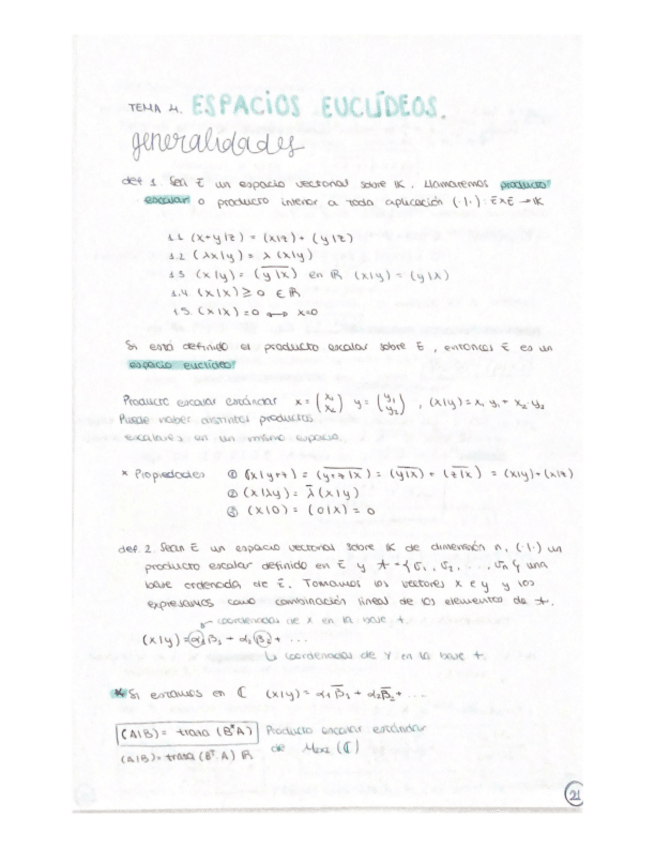 TEMA 4. ESPACIOS EUCLÍDEOS.
generalidades
def 1. Sea E un espacio vectorial sobre K. Llamaremos producto
escalar o producto interior a toda aplicación (·|·): E×E → K
1.1 (x+y|z) = (x|z) + (y|z)
1.2 (λx|y) = λ (x|y)
1.3 (x|y) = (\overline{y|x}) en R (x|y) = (y|x)
1.4. (x|x) ≥ 0 ∈ R
1.5. (x|x) = 0 ⟷ x=0
Si está definido el producto escalar sobre E, entonces E es un
espacio euclídeo
Producto escalar estándar x = (x₁ x₂) y = (y₁ y₂), (x|y) = x₁ y₁ + x₂·y₂
Puede haber distintos productos
escalares en un mismo espacio
* Propiedades ① (x|y+z) = (\overline{y+z|x}) = (\overline{y|x}) + (\overline{z|x}) = (x|y)+(x|z)
② (x|λy) = \overline{λ} (x|y)
③ (x|0) = (0|x) = 0
def. 2. Sean E un espacio vectorial sobre K de dimensión n, (·|·) un
producto escalar definido en E y A = {v₁, v₂, ..., vₙ} una
base ordenada de E. Tomamos los vectores x e y y los
expresamos como combinación lineal de los elementos de A.
coordenadas de x en la base A.
(x|y) = α₁β₁ + α₂β₂ + ...
↳ coordenadas de Y en la base A.
* Si estamos en C (x|y) = α₁\overline{β}₁ + α₂\overline{β}₂ + ...
(A|B) = traza (B*A) Producto escalar estándar
(A|B) = traza (Bᵀ·A) R de M₂ₓ₂ (C)
21